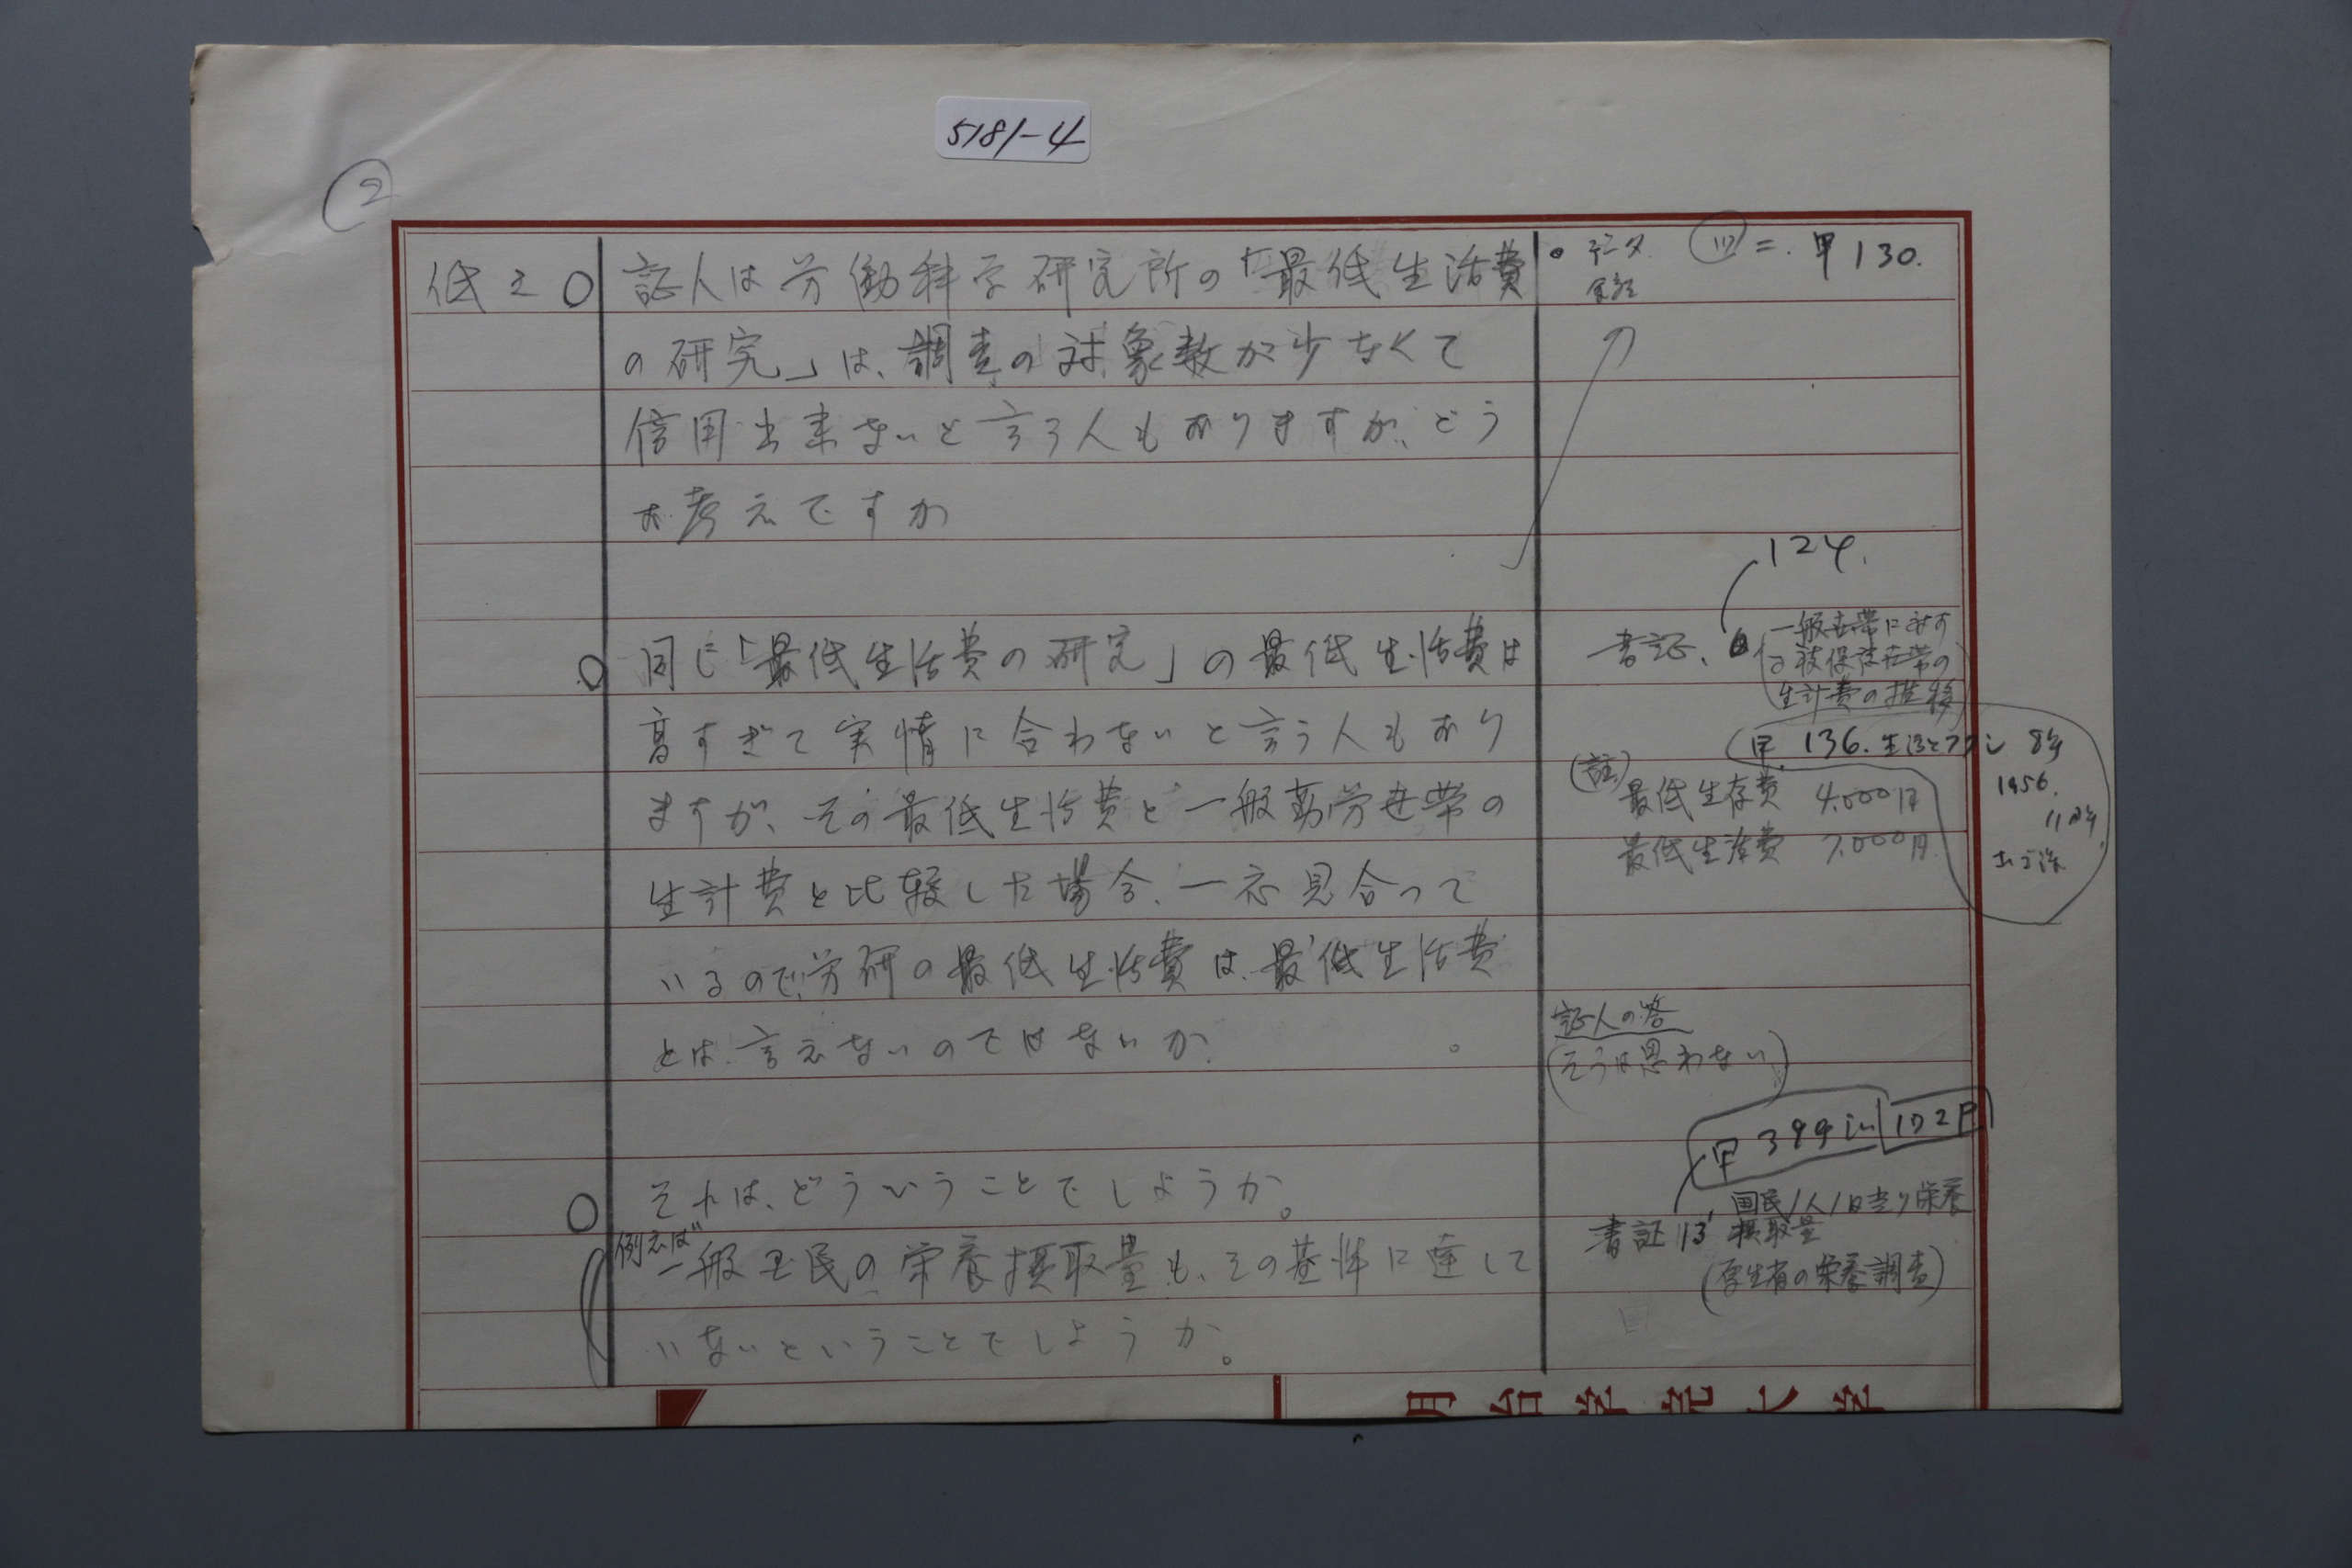 5181-4
②
低２○
証人は労働科学研究所の「最低生活費
の研究」は、調査の対象数が少なくて
信用出来ないと言う人もありますが、どう
お考えですか
○同じ「最低生活費の研究」の最低生活費は
高すぎて実情に合わないと言う人もあり
ますが、その最低生活費と一般勤労世帯の
生計費と比較した場合、一応見合って
いるので、労研の最低生活費は、最低生活費
とは言えないのではないか
○それは、どういうことでしょうか。
例えば
一般国民の栄養摂取量も、その基準に達して
いないということでしょうか。
・データ
甲130.
124.
書証、
一般世帯に対す
る被保護世帯の
生計費の推移
甲136.
1956.
(註)
最低生存費 4,000円
最低生活費 7,000円
証人の答
(そうは思わない)
甲399
書証13
国民1人1日当り栄養
摂取量
(厚生省の栄養調査)
明治学院大学